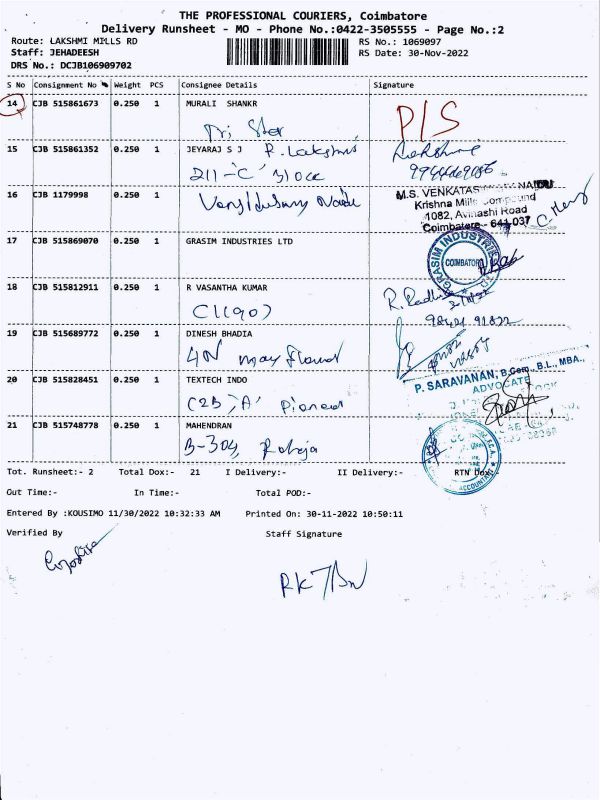 THE PROFESSIONAL COURIERS, Coimbatore
Delivery Runsheet - MO - Phone No.:0422-3505555 - Page No.:2
Route: LAKSHMI MILLS RD RS No.: 1069097
Staff: JEHADEESH RS Date: 30-Nov-2022
DRS No.: DCJB106909702
S No Consignment No Weight PCS Consignee Details Signature
14 CJB 515861673 0.250 1 MURALI SHANKR
Tri Star P/S
15 CJB 515861352 0.250 1 JEYARAJ S J R. Lakshmi
211-'C' Block
16 CJB 1179998 0.250 1 M.S. VENKATAS NAIDU
Krishna Mills Compound
1082, Avinashi Road
Coimbatore - 641 037
17 CJB 515869070 0.250 1 GRASIM INDUSTRIES LTD GRASIM INDUSTRIES LTD
COIMBATORE
18 CJB 515812911 0.250 1 R VASANTHA KUMAR
C1(90)
19 CJB 515689772 0.250 1 DINESH BHADIA
4N
20 CJB 515828451 0.250 1 TEXTECH INDO P. SARAVANAN, B.Com., B.L., MBA.,
ADVOCATE
C2B, 'A'
21 CJB 515748778 0.250 1 MAHENDRAN
B-304, Raheja ACCOUNTANT
Tot. Runsheet:- 2 Total Dox:- 21 I Delivery:- II Delivery:- RTN Dox:-
Out Time:- In Time:- Total POD:-
Entered By :KOUSIMO 11/30/2022 10:32:33 AM Printed On: 30-11-2022 10:50:11
Verified By Staff Signature